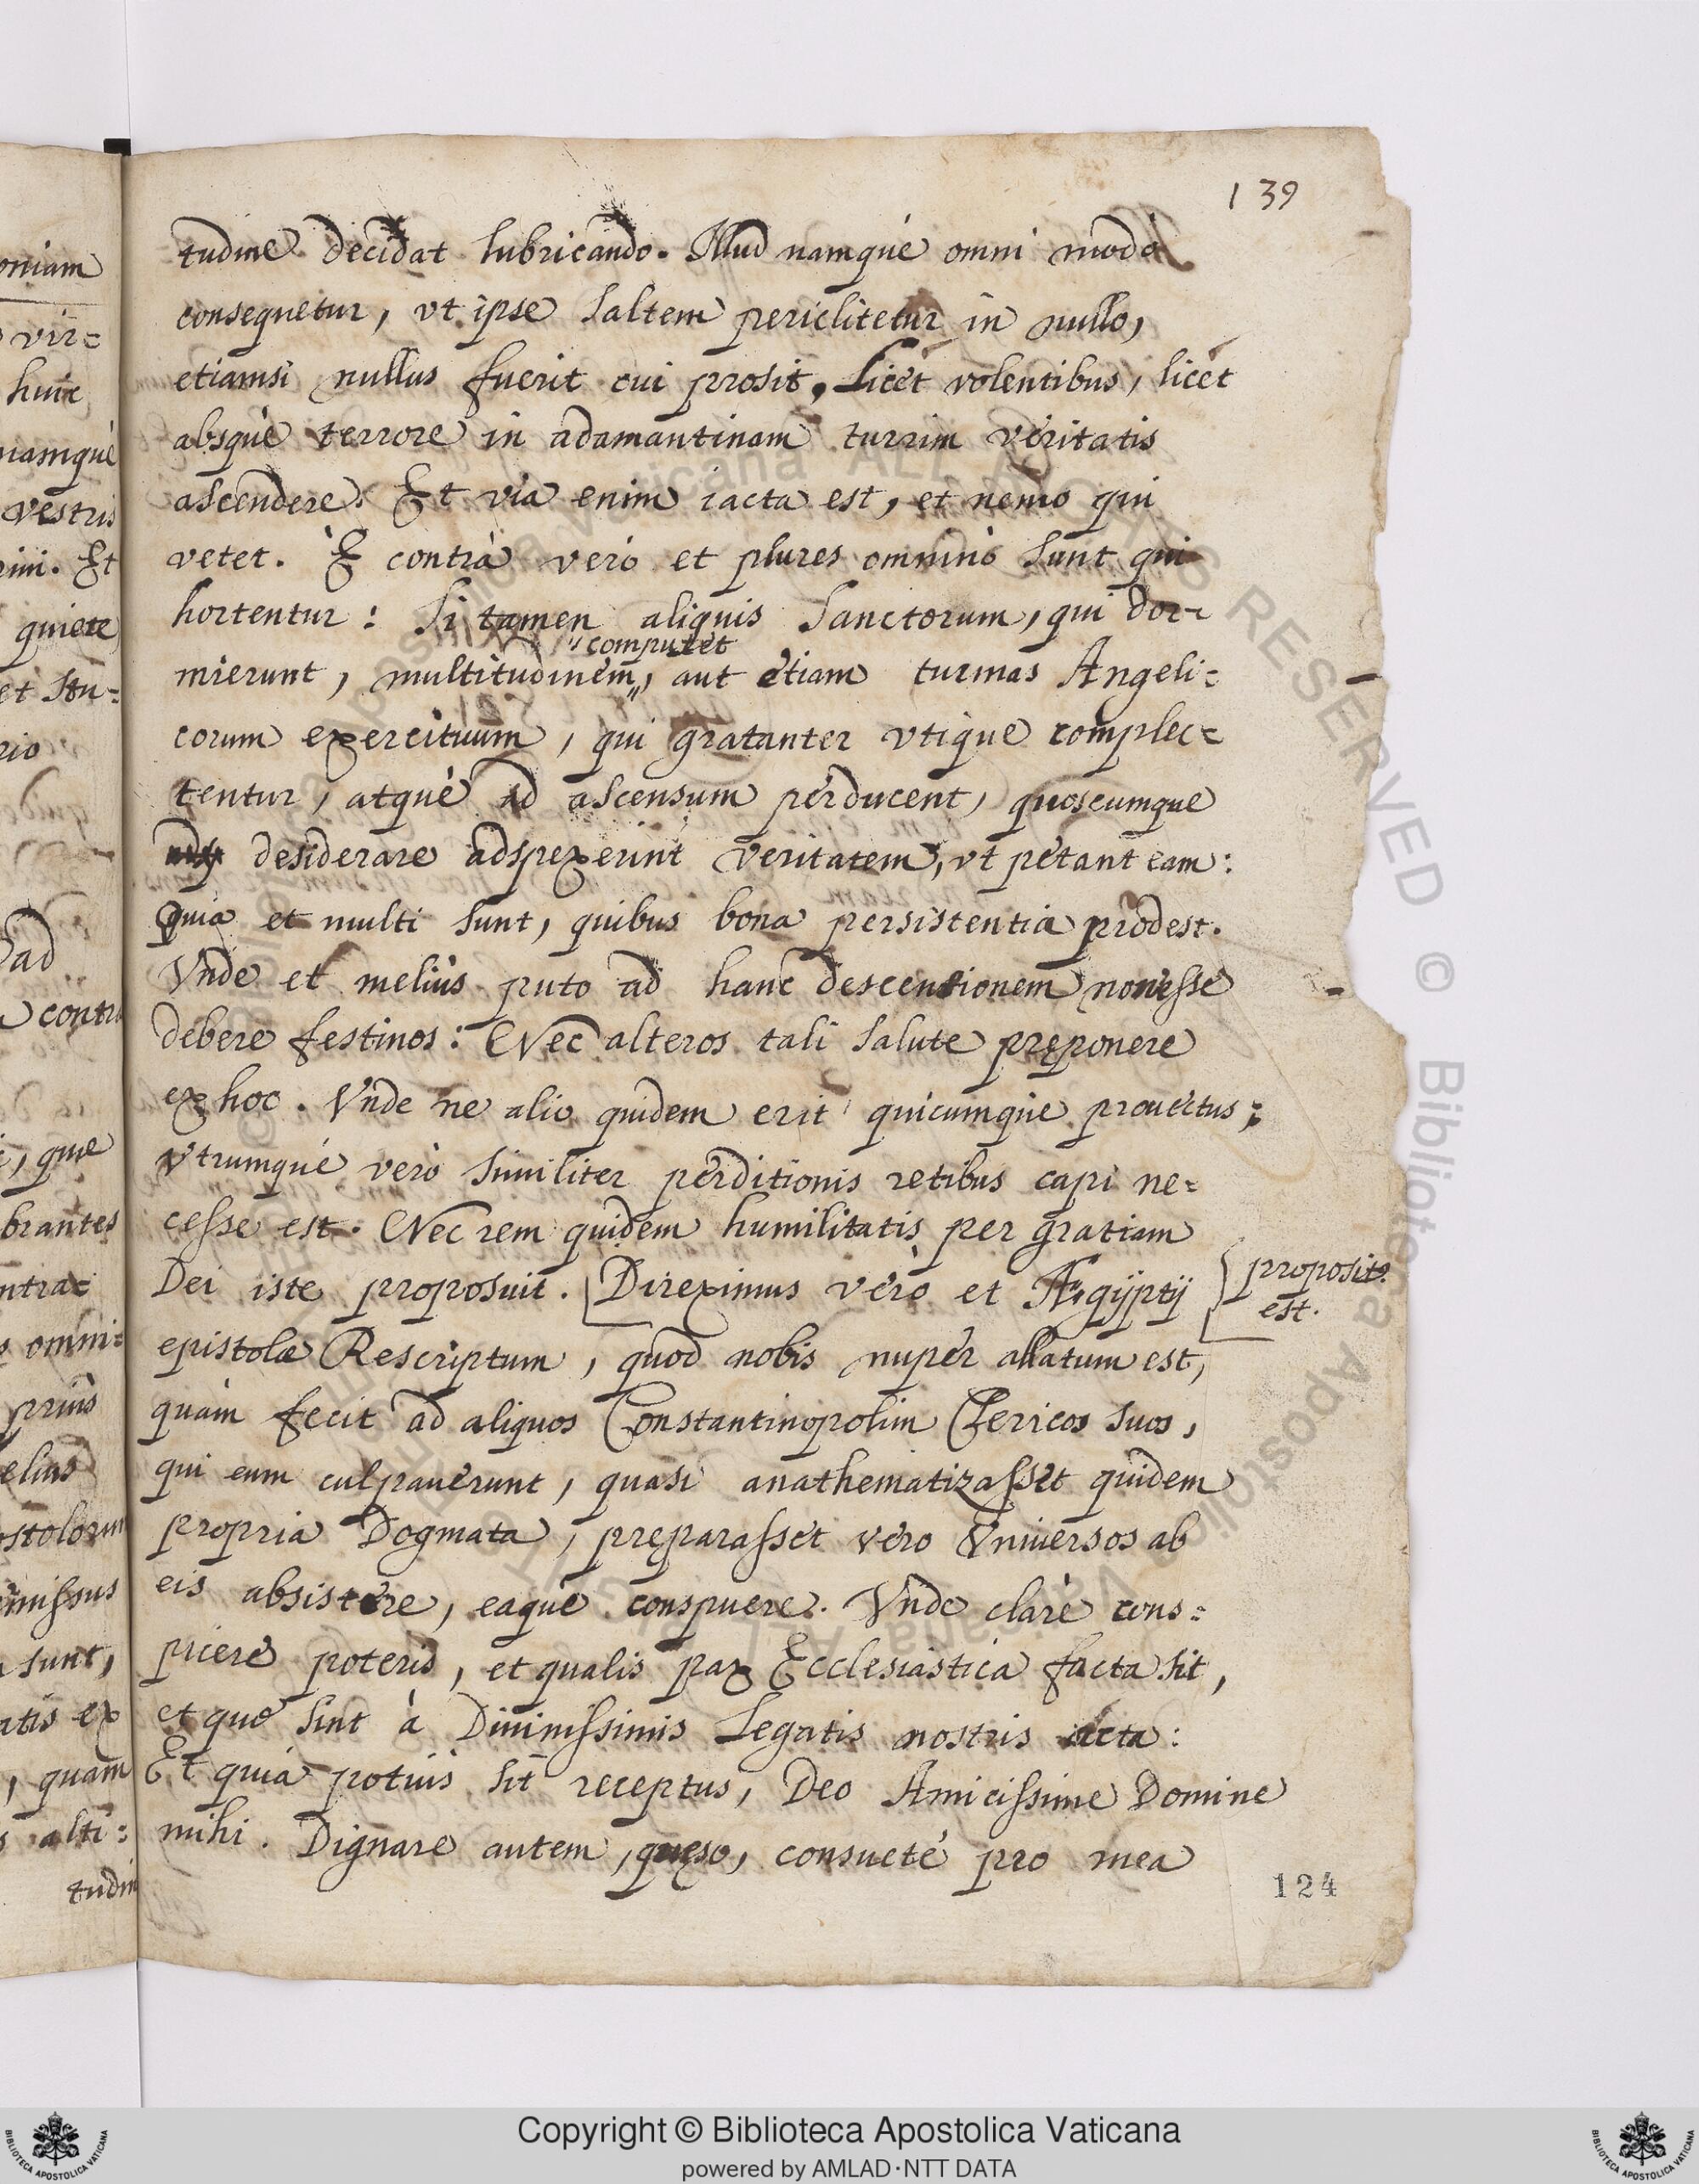 139
tudine decidat lubricando. Illud namqué omni modò
consequetur, vt ipse saltem periclitetur in nullo,
etiamsi nullus fuerit cui prosit, Licèt volentibus, licèt
absquè terrore in adamantinam turrim veritatis
ascendere. Et via enim iacta est, et nemo qui
vetet. È contrà verò et plures omninò sunt qui
hortentur: Si tamen aliquis Sanctorum, qui dor=
computet
mierunt, multitudinem,, aut etiam turmas Angeli=
corum exercituum, qui gratanter vtique complec=
tentur, atquè ad ascensum perducent, quoscumque
desiderare adspexerint veritatem, vt petant eam:
Quia et multi sunt, quibus bona persistentia prodest.
Vnde et meliùs puto ad hanc descensionem non esse
debere festinos: Nec alteros tali salute pręponere
ex hoc. Vnde ne alio quidem erit quicumque prouectus;
vtrumqué verò similiter perditionis retibus capi ne=
cesse est. Nec rem quidem humilitatis per gratiam
Dei iste proposuit. [Direximus verò et Ægijptij
proposit?
est.
epistolæ Rescriptum, quod nobis nupèr allatum est,
quàm fecit ad aliquos Constantinopolim Clericos suos,
qui eum culpauerunt, quasi anathematizasset quidem
propria Dogmata, pręparasset vero Vniuersos ab
eis absistere, eaquè conspuere. Vnde clarè cons=
picere poteris, et qualis pax Ecclesiastica facta sit,
et quę sint à Diuinissimis Legatis nostris acta:
Et quia potius sit receptus, Deo Amicissime Domine
mihi. Dignare autem, quęso, consueté pro mea
124
oniam
vir=
huic
namquè
vestris
rini. Et
quiete
et stu=
rio
ad
contra
, quæ
brantes
ntrac
omni=
priùs
elius
ostolorum
missus
sunt,
atis ex
, quam
s alti=
tudin
Copyright © Biblioteca Apostolica Vaticana
powered by AMLAD·NTT DATA